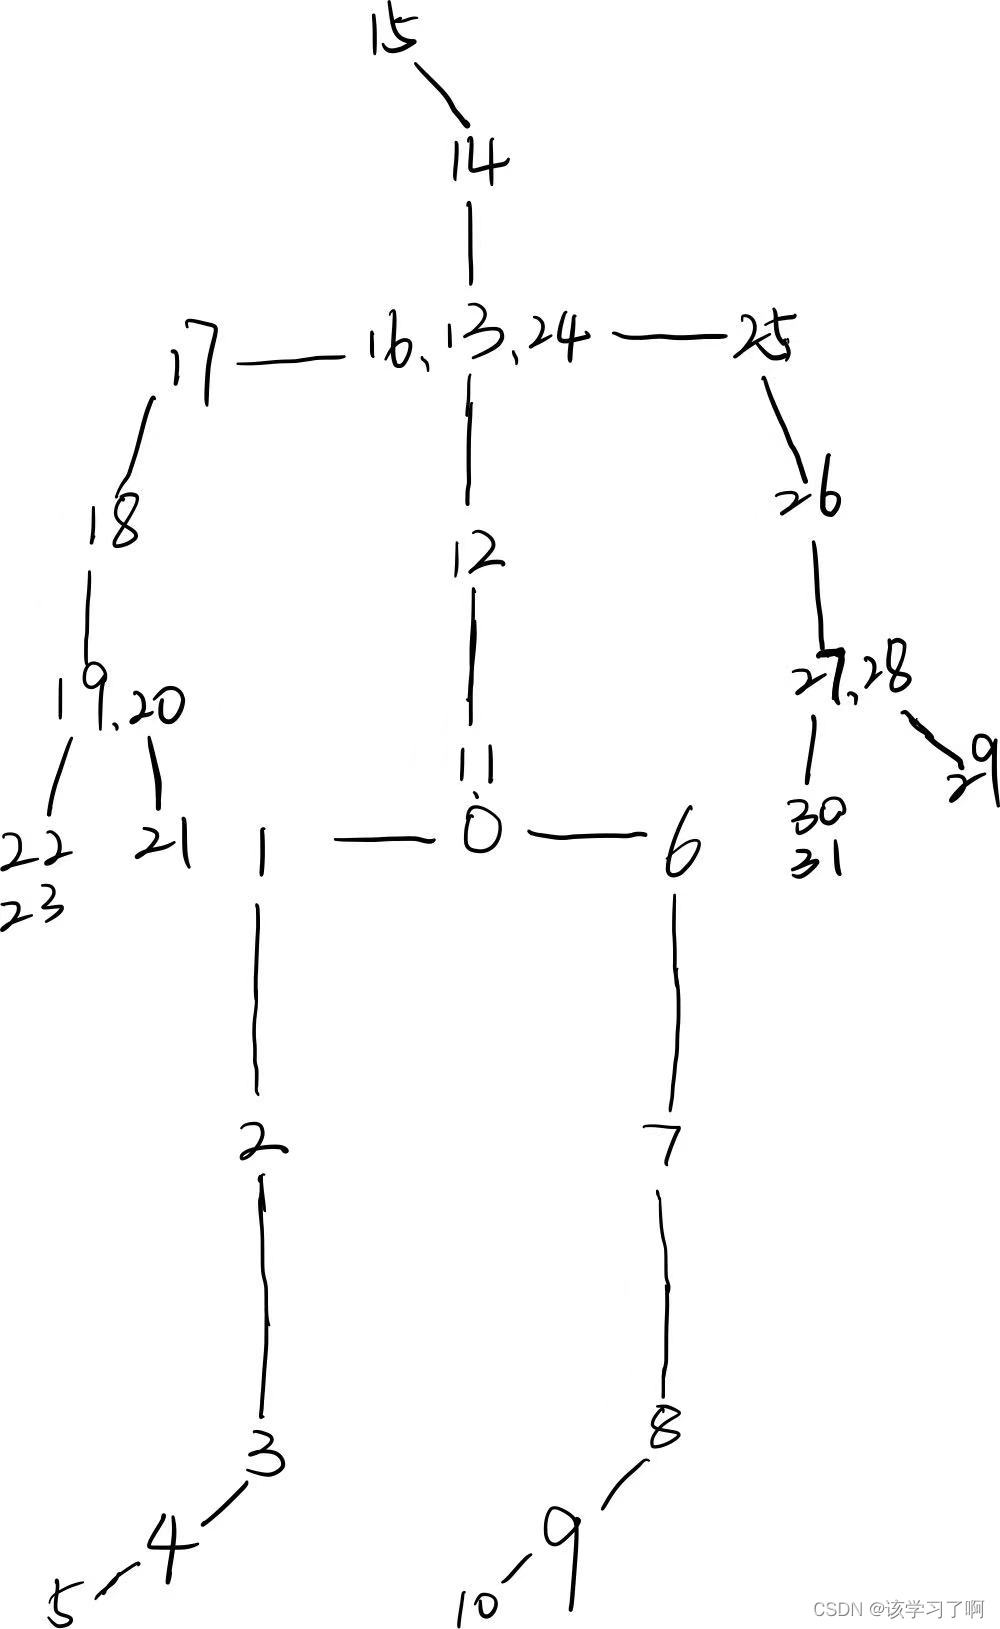 15
14
17 16、13、24 25
18 12 26
19、20 11 27、28
29
22 21 1 0 6 30
23 31
2 7
3 8
4 9
5 10
CSDN @该学习了啊